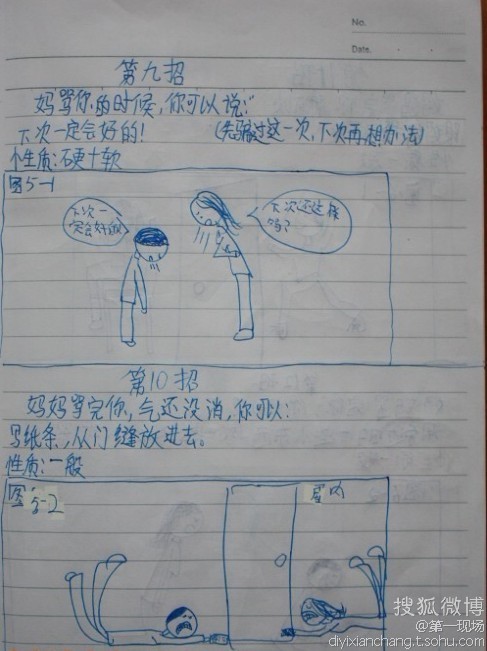 No.
Date.
第九招
妈骂你的时候，你可以说：“
下次一定会好的！ （先骗过这一次，下次再想办法）
性质：硬+软
图5-1
下次一
定会好的
下次还这样
吗？
第10招
妈妈骂完你，气还没消，你可以：
写纸条，从门缝放进去。
性质：一般
图5-2
屋内
搜狐微博
@第一现场
diyixianchang.t.sohu.com